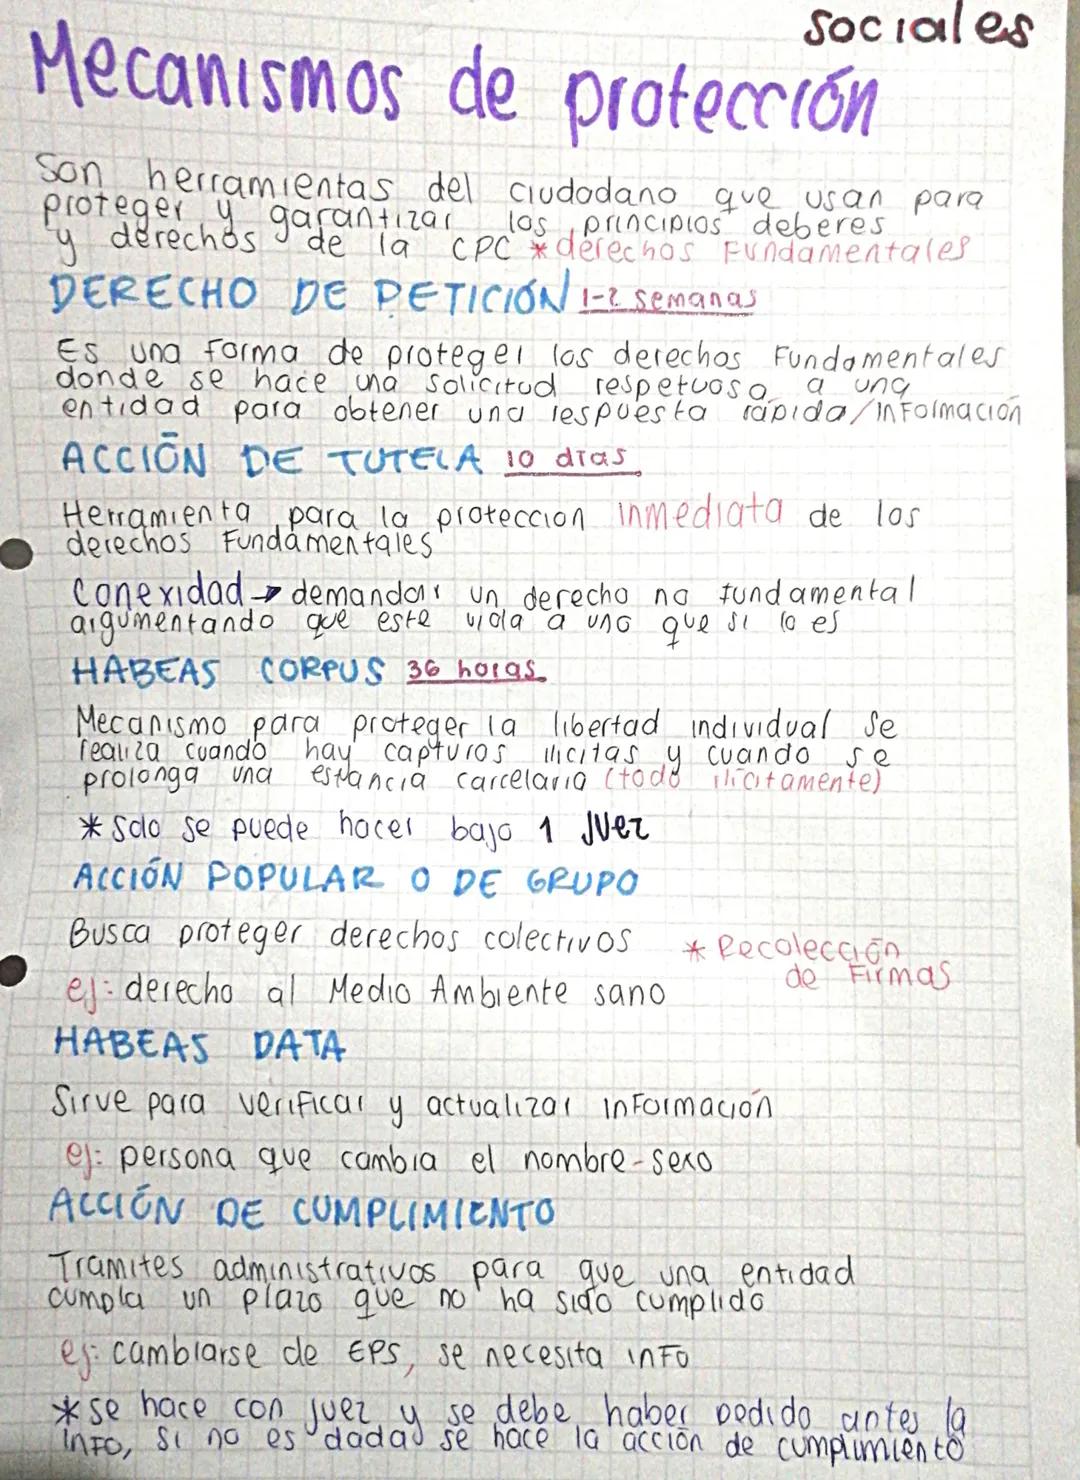 sociales
Mecanismos de protección
Son herramientas del ciudadano que usan para
proteger y garantizar los principios deberes
y derechos de la CPC *derechos Fundamentales
DERECHO DE PETICIÓN 1-2 semanas
Es una forma de proteger los derechos Fundamentales
donde se hace una solicitud respetuosa a una
entidad para obtener una respuesta rápida/información
ACCIÓN DE TUTELA 10 días
Herramienta para la proteccion inmediata de los
derechos Fundamentales
Conexidad → demandar un derecho no fundamental
argumentando que este viola a uno que si lo es
HABEAS CORPUS 36 horas
Mecanismo para proteger la libertad individual se
realiza cuando hay capturas ilicitas y cuando se
prolonga una estancia carcelaria (todo ilicitamente)
* Solo se puede hacer bajo 1 Juez
ACCIÓN POPULAR O DE GRUPO
Busca proteger derechos colectivos * Recolección
de Firmas
ej: derecho al Medio Ambiente sano
HABEAS DATA
Sirve para verificar y actualizar información
ej: persona que cambia el nombre-sexo
ACCIÓN DE CUMPLIMIENTO
Tramites administrativos para que una entidad
cumpla un plazo que no ha sido cumplido
ej: cambiarse de EPS, se necesita info
* se hace con juez y se debe haber pedido antes la
info, si no es dada se hace la acción de cumplimiento